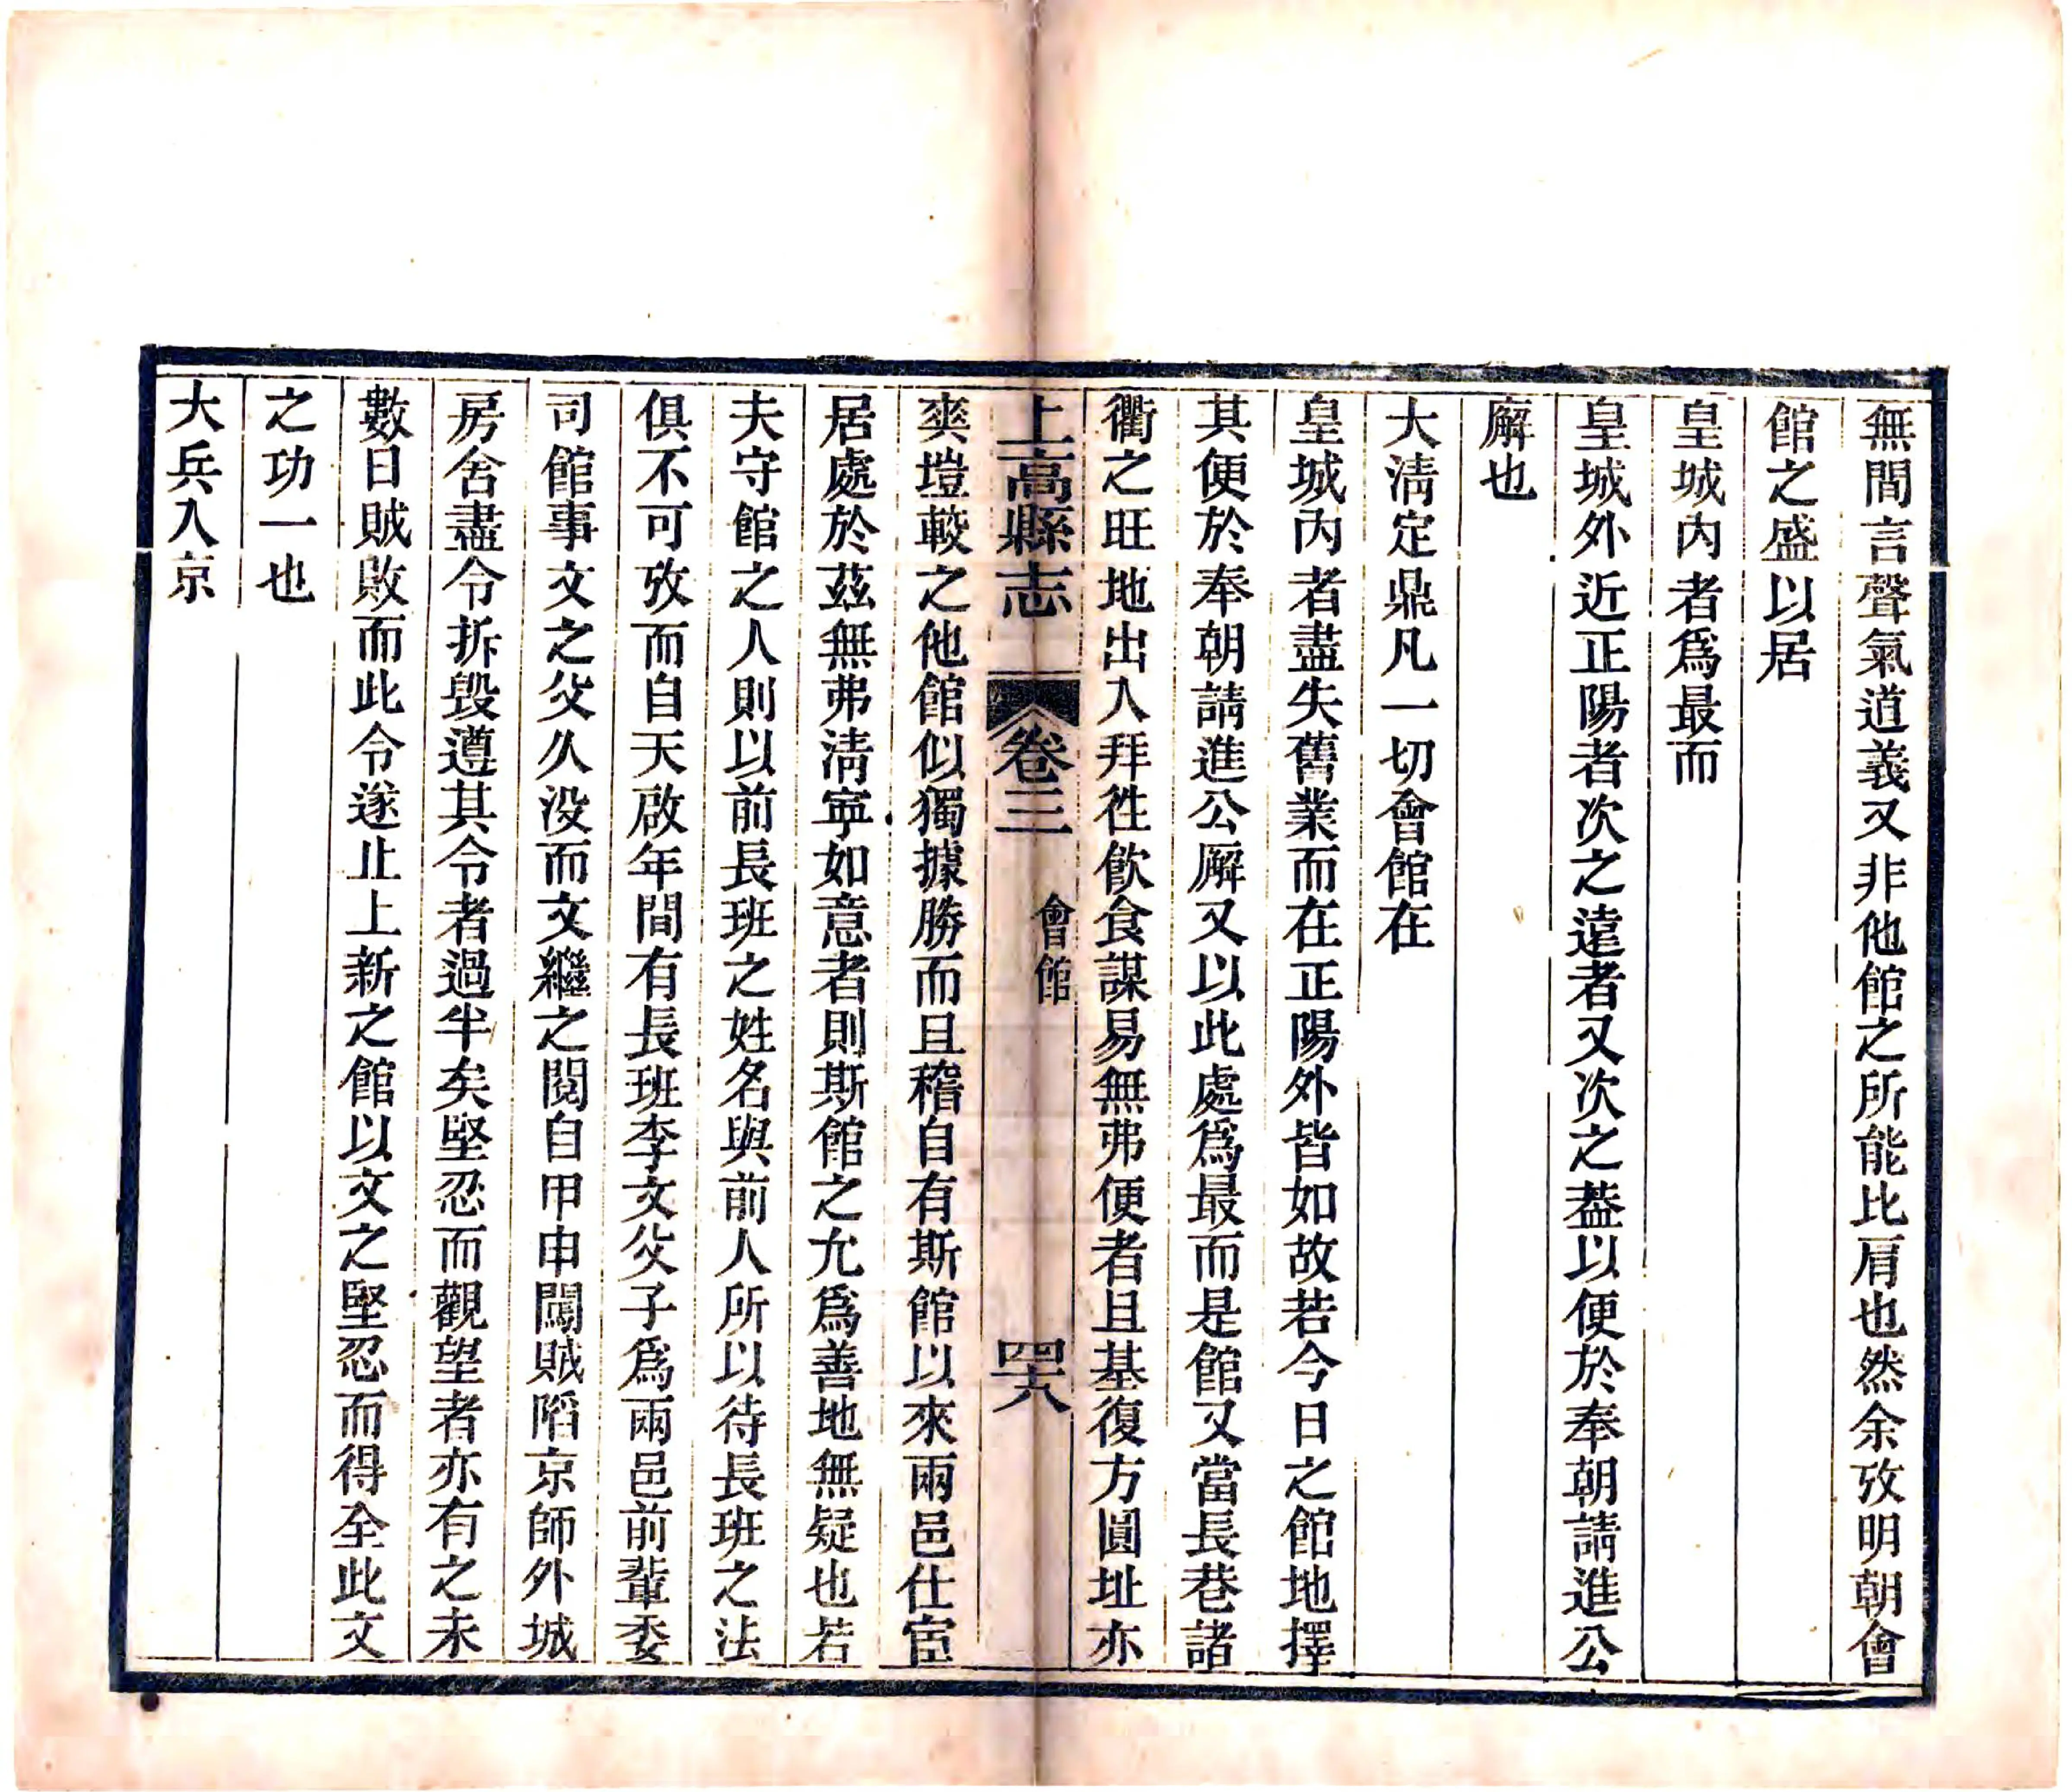 無間言聲氣道義又非他館之所能比肩也然余攷明朝會
館之盛以居
皇城內者爲最而
皇城外近正陽者次之遠者又次之葢以便於奉朝請進公
廨也
大淸定鼎凡一切會館在
皇城內者盡失舊業而在正陽外皆如故若今日之館地擇
其便於奉朝請進公廨又以此處爲最而是館又當長巷諸
衢之旺地出入拜徃飮食謀易無弗便者且基復方圓址亦
上高縣志 卷三 會館 四十八
爽塏較之他館似獨據勝而且稽自有斯館以來兩邑仕宦
居處於茲無弗淸寧如意者則斯館之允爲善地無疑也若
夫守館之人則以前長班之姓名與前人所以待長班之法
俱不可攷而自天啟年間有長班李文父子爲兩邑前輩委
司館事文之父久沒而文繼之閱自甲申闖賊陷京師外城
房舍盡令拆毀遵其令者過半矣堅忍而觀望者亦有之未
數日賊敗而此令遂止上新之館以文之堅忍而得全此文
之功一也
大兵入京